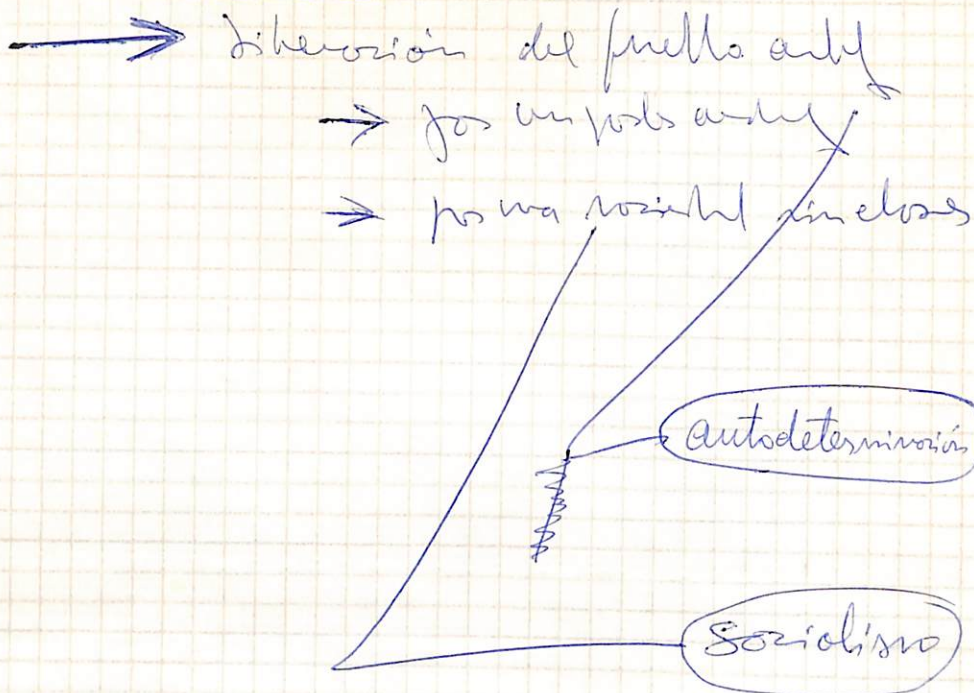 → Liberación del pueblo
→ por un poder
→ por una soziedad sin clases
autodeterminazión
Sozialismo